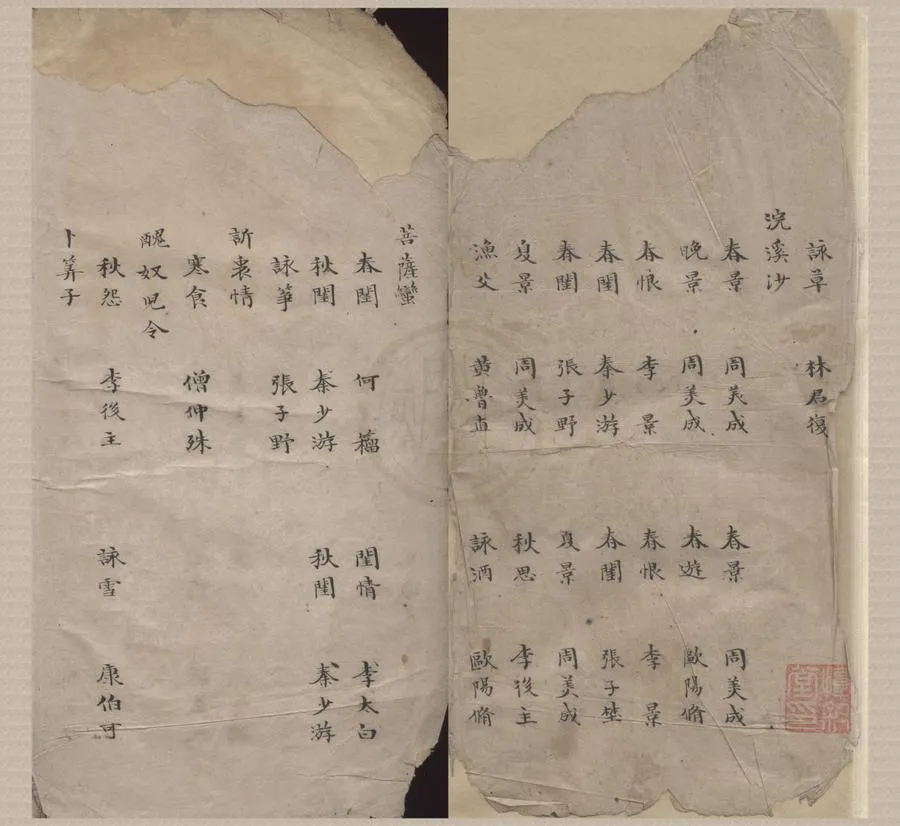 詠草 林君復
浣溪沙
春景 周美成 春景 周美成
晚景 周美成 春遊 歐陽脩
春恨 李景 春恨 李景
春閨 秦少游 春閨 張子埜
春閨 張子野 夏景 周美成
夏景 周美成 秋思 李後主
漁父 黃魯直 詠酒 歐陽脩
菩薩蠻
春閨 何籀 閨情 李太白
秋閨 秦少游 秋閨 秦少游
詠箏 張子野
訴衷情
寒食 僧仲殊
醜奴児令
秋怨 李後主 詠雪 康伯可
卜筭子